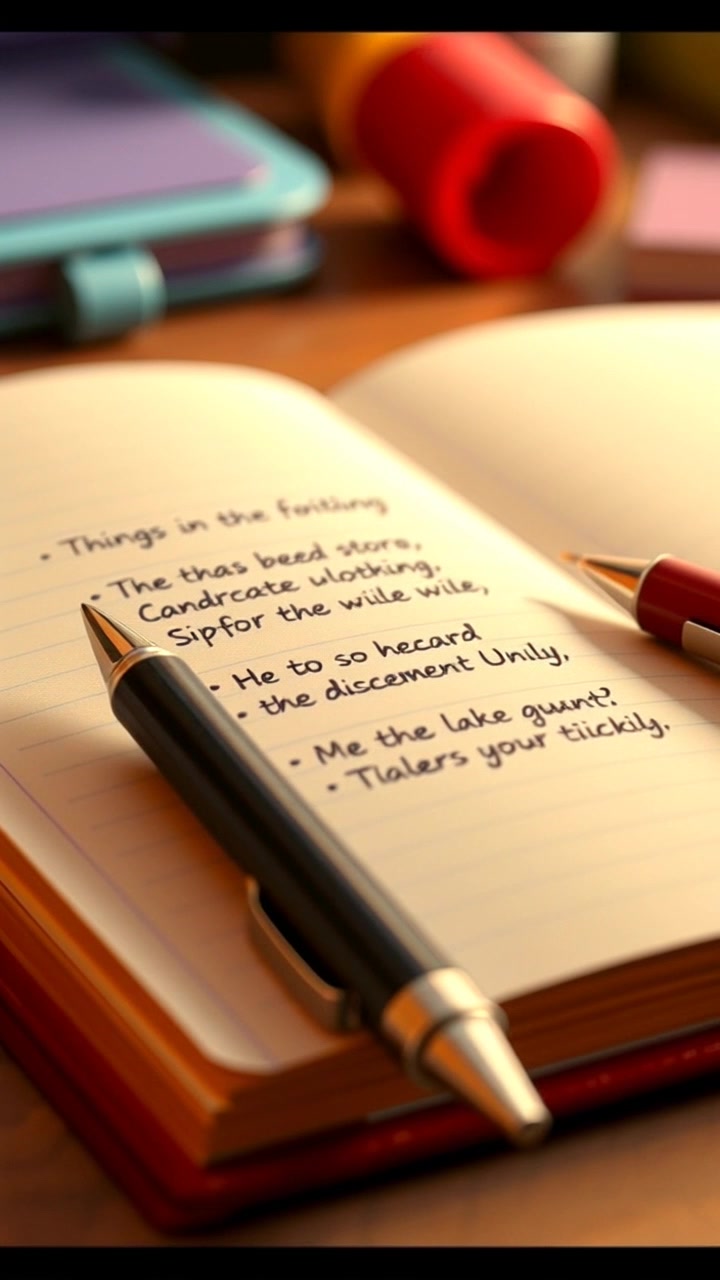 • Things in the foitling
• The thas beed store,
Candrcate ulotking,
Sipfor the wiile wile,
• He to so hecard
• the discement Unily,
• Me the lake guunt?
• Tlalers your tiickily.